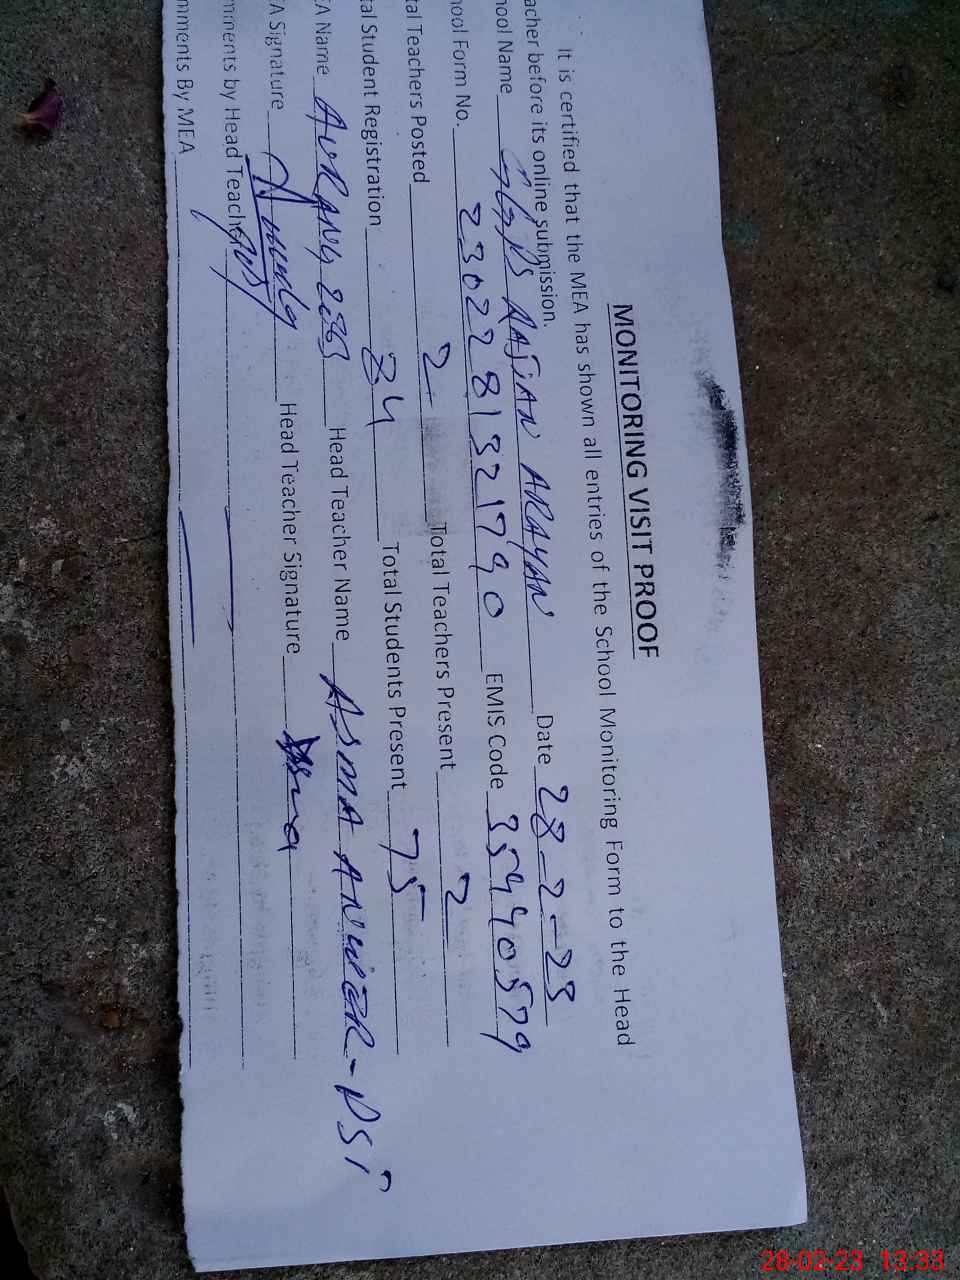 MONITORING VISIT PROOF
It is certified that the MEA has shown all entries of the School Monitoring Form to the Head
acher before its online submission.
ool Name GGPS RASJAN ARAYAN Date 28-2-23
ool Form No. 2302281321790 EMIS Code 35440579
tal Teachers Posted 2 Total Teachers Present 2
tal Student Registration 84 Total Students Present 75
EA Name AURANGZEB Head Teacher Name ASMA ANWER-PSI
EA Signature Head Teacher Signature Asma
mments by Head Teacher
mments By MEA
28-02-23 13:33